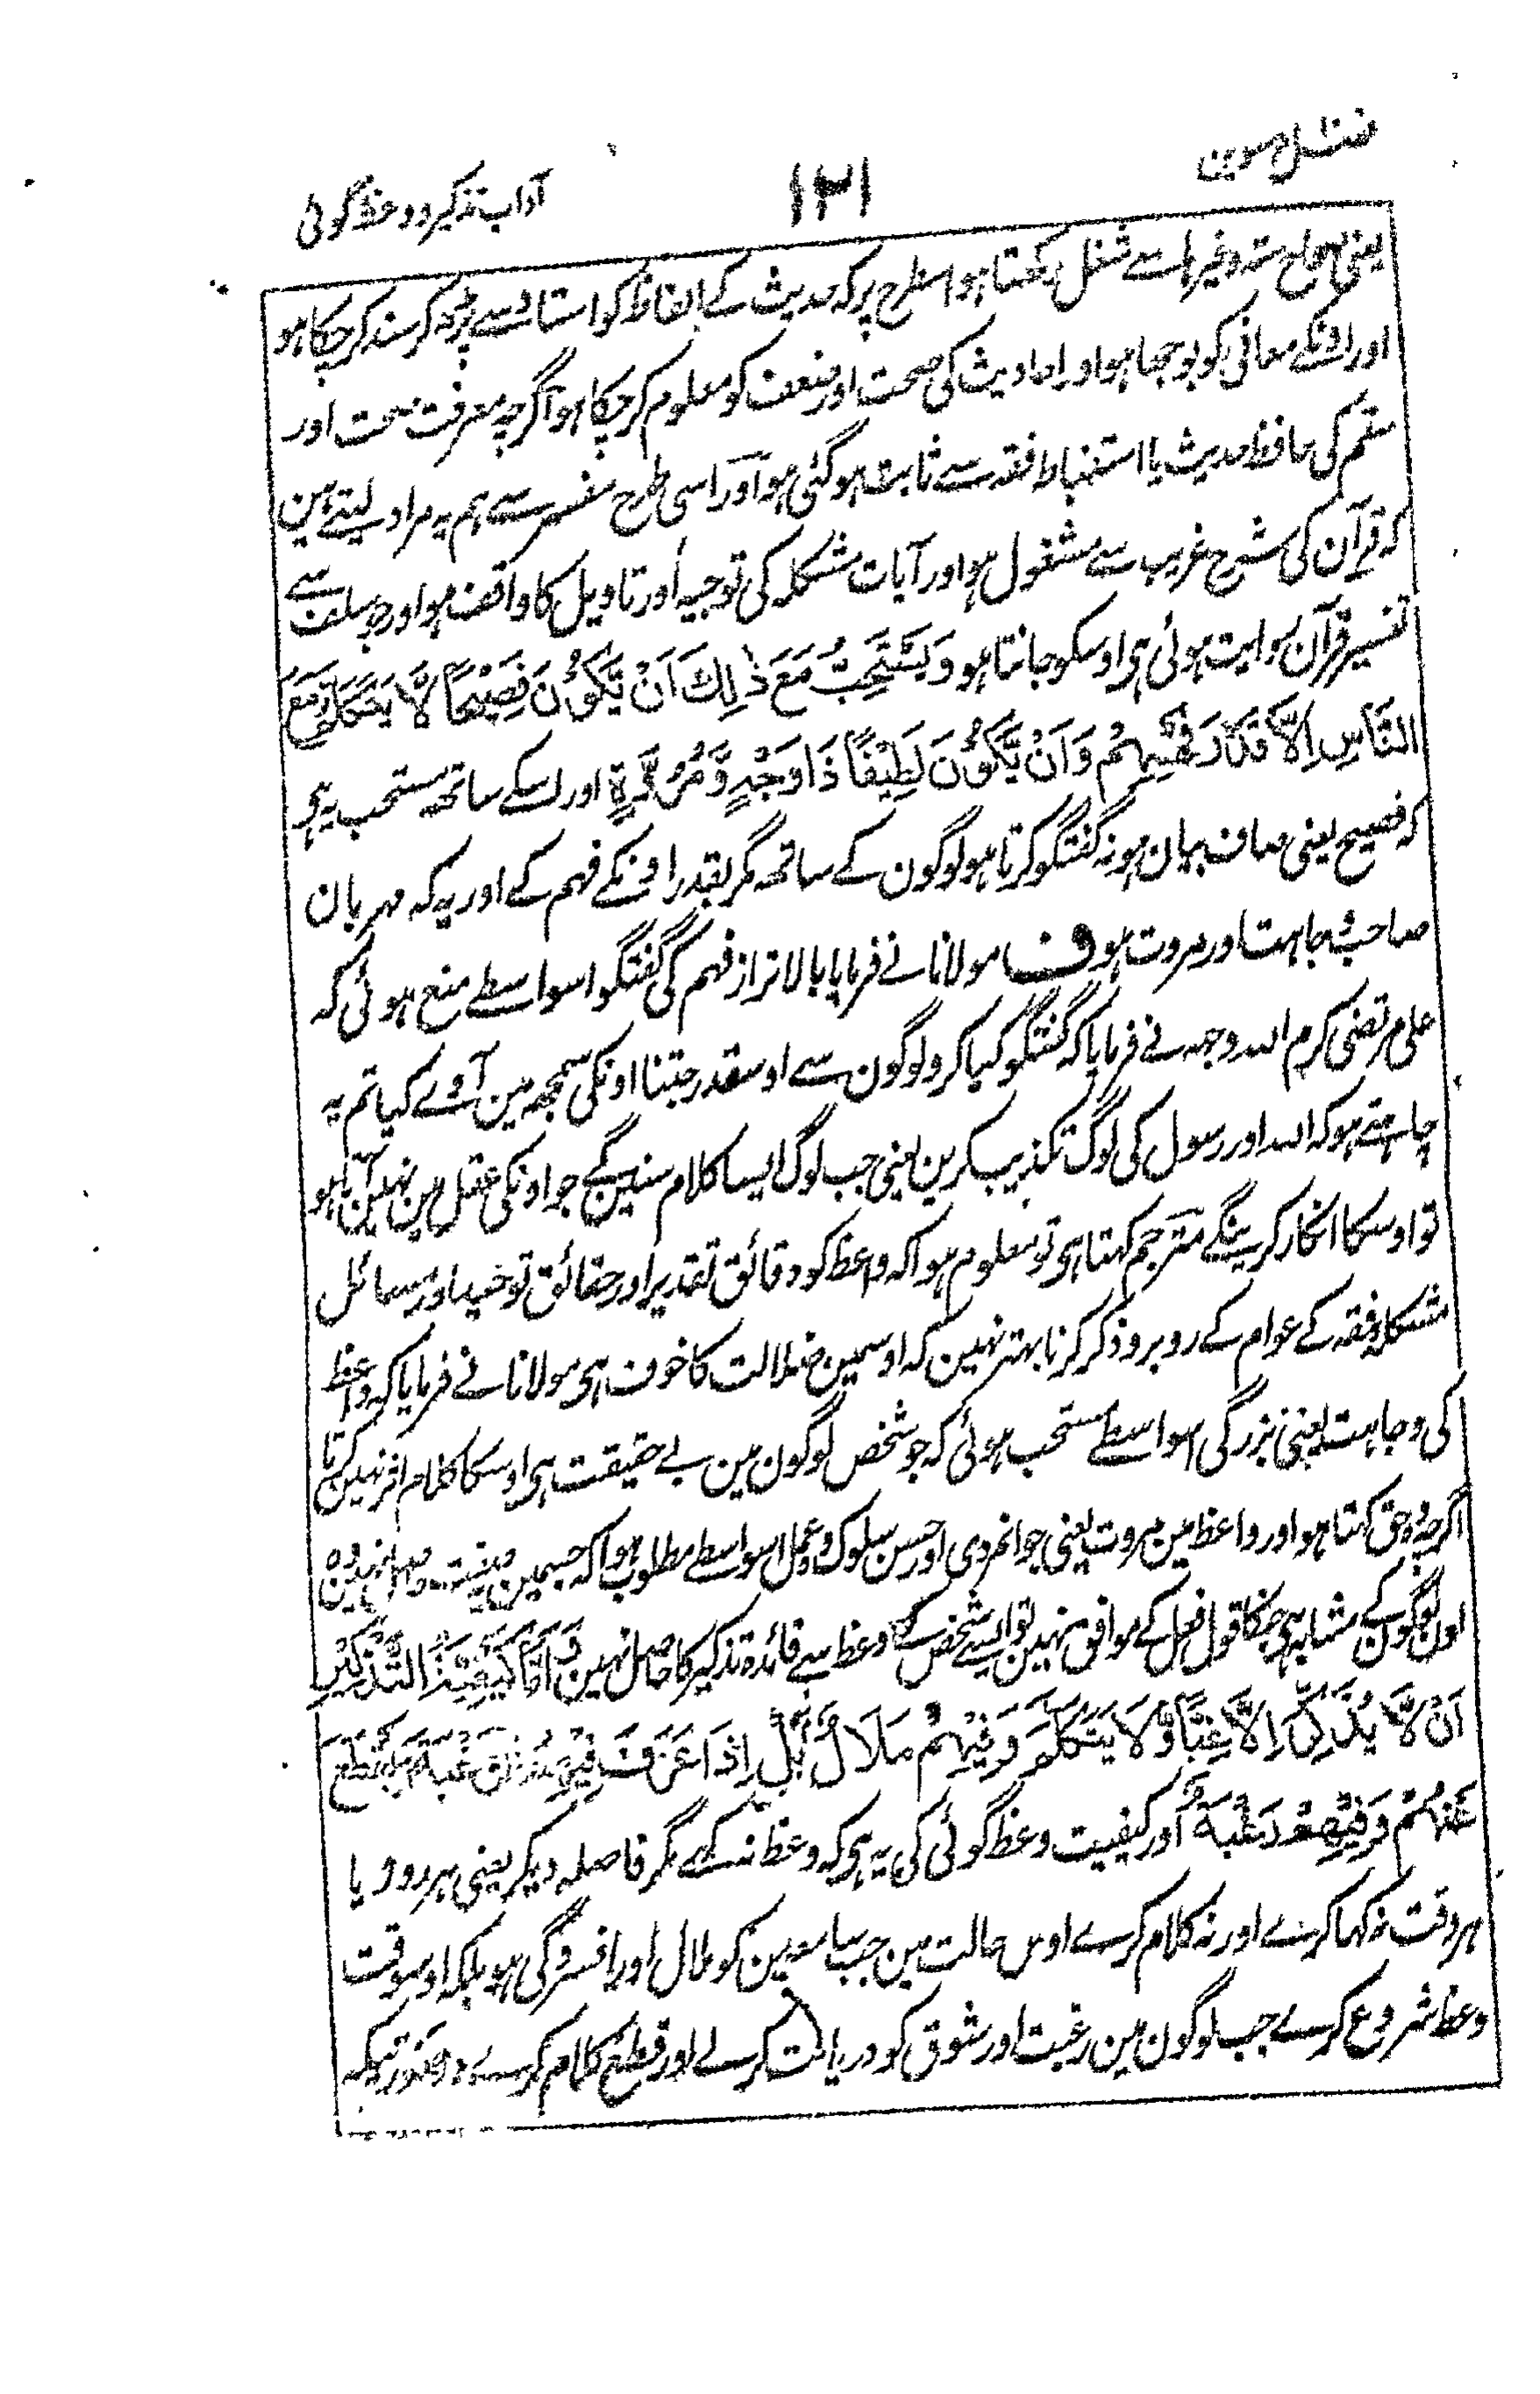 آداب تذکیر و وعظ گوئی
۱۲۱
یعنی صحاح ستہ وغیرہا سے شغل رکھتا ہو اسطرح پر کہ حدیث کے الفاظ کو استاد سے پڑھ کر سند کر چکا ہو
اور اونکے معانی کو بوجھا ہو اور احادیث کی صحت اور ضعف کو معلوم کر چکا ہو اگرچہ معرفت صحت اور
سقم کی حافظ حدیث یا استنباط فقہ سے ثابت ہو گئی ہو اور اسی طرح مفسر سے ہم یہ مراد لیتے ہین
کہ قرآن کی شرح غریب سے مشغول ہو اور آیات مشکلہ کی توجیہ اور تاویل کا واقف ہو اور جو سلف سے
تفسیر قرآن روایت ہوئی ہی اوسکو جانتا ہو وَيُسْتَحَبُّ مَعَ ذٰلِكَ اَنْ يَّكُوْنَ فَصِيْحًا لَّا يَتَكَلَّمُ مَعَ
النَّاسِ اِلَّا قَدْرَ فَهْمِهِمْ وَاَنْ يَّكُوْنَ لَطِيْفًا ذَا وَجْهٍ وَّمُرُوَّةٍ اور اسکے ساتھ مستحب یہ ہی
کہ فصیح یعنی صاف بیان ہو نہ گفتگو کرتا ہو لوگون کے ساتھ مگر بقدر اونکے فہم کے اور یہ کہ مہربان
صاحب وجاہت اور مروت ہو ف مولانا نے فرمایا بالاتر از فہم کی گفتگو اسواسطے منع ہوئی کہ
علی مرتضی کرم اللہ وجہہ نے فرمایا کہ گفتگو کیا کرو لوگون سے اوسقدر جتنا اونکی سمجھ مین آوے کیا تم یہ
چاہتے ہو کہ اللہ اور رسول کی لوگ تکذیب کرین یعنی جب لوگ ایسا کلام سنین گے جو اونکی عقل مین نہین آتا ہو
تو اوسکا انکار کرینگے مترجم کہتا ہی تو معلوم ہوا کہ واعظ کو دقائق تقدیر اور حقائق توحید اور مسائل
مشکلہ فقہ کے عوام کے روبرو ذکر کرنا بہتر نہین کہ اوسمین ضلالت کا خوف ہی مولانا نے فرمایا کہ واعظ
کی وجاہت یعنی بزرگی اسواسطے مستحب ہوئی کہ جو شخص لوگون مین بے حقیقت ہی اوسکا کلام اثر نہین کرتا
اگرچہ وہ حق کہتا ہو اور واعظ مین مروت یعنی جوانمردی اور حسن سلوک و عمل اسواسطے مطلوب ہوا کہ جسمین یہ صفت حاصل نہین وہ
اون لوگون کے مشابہ ہی جنکا قول فعل کے موافق نہین تو ایسے شخص کے وعظ سے فائدہ تذکیر کا حاصل نہین وَاَمَّا كَيْفِيَّةُ التَّذْكِيْرِ
اَنْ لَّا يُذَكِّرَ اِلَّا غِبًّا وَّلَا يَتَكَلَّمَ وَفِيْهِمْ مَلَالٌ بَلْ اِذَا عَرَفَ فِيْهِمُ الرَّغْبَةَ وَيَقْطَعَ
عَنْهُمْ وَفِيْهِمْ رَغْبَةٌ اور کیفیت وعظ گوئی کی یہ ہی کہ وعظ نہ کہے مگر فاصلہ دیکر یعنی ہر روز یا
ہر وقت نہ کہا کرے اور نہ کلام کرے اوس حالت مین جب سامعین کو ملال اور افسردگی ہو بلکہ اوسوقت
وعظ شروع کرے جب لوگون مین رغبت اور شوق کو دریافت کرلے اور قطع کلام کرے